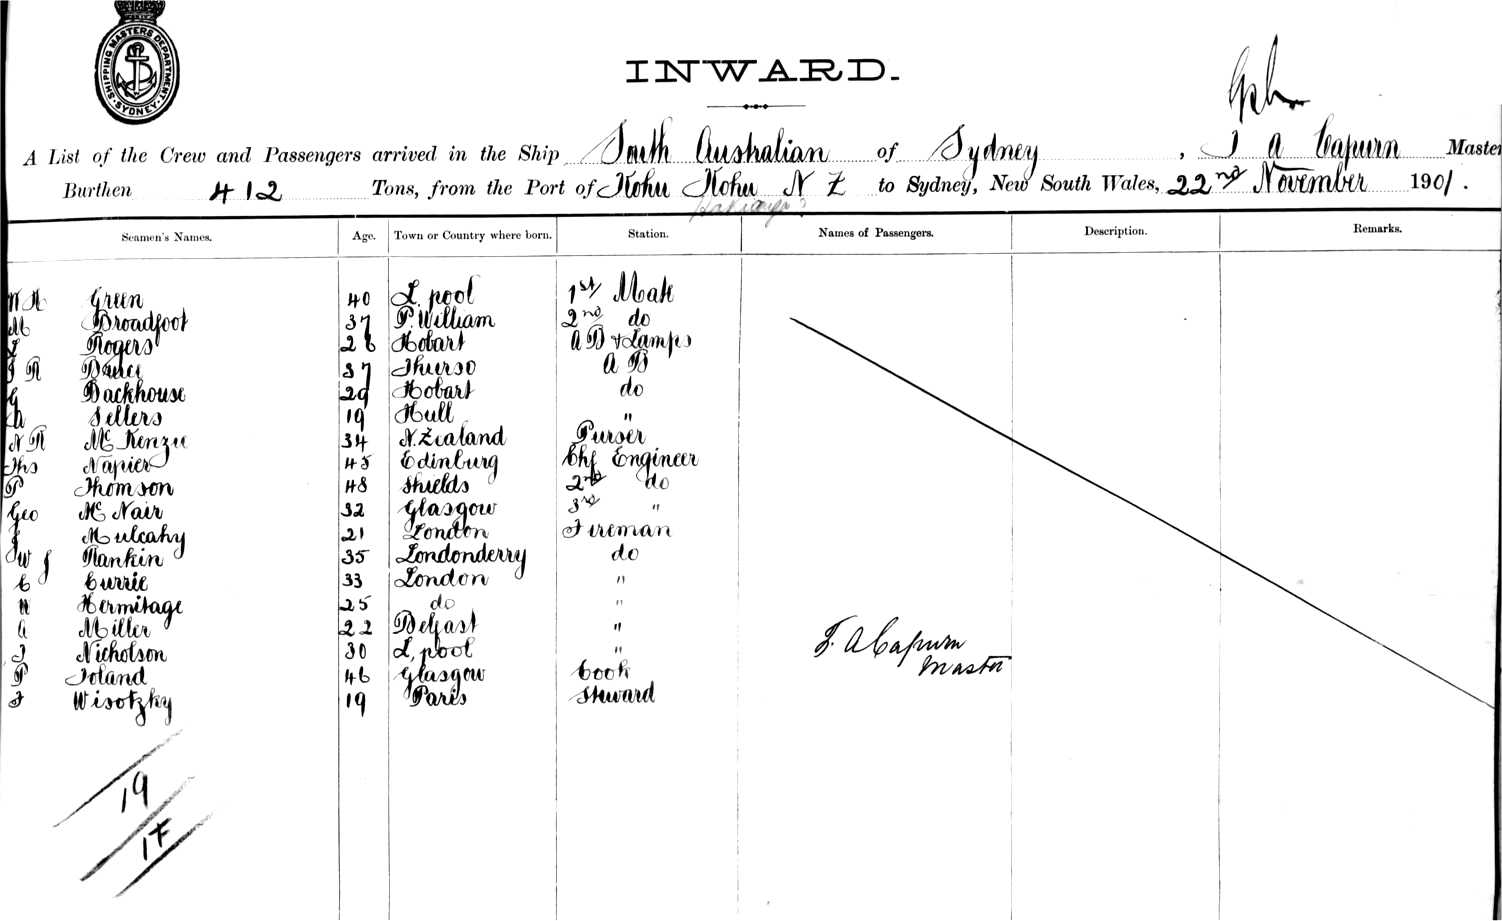 SHIPPING MASTERS DEPARTMENT
SYDNEY
INWARD.
A List of the Crew and Passengers arrived in the Ship South Australian of Sydney, A Capurn Master
Burthen 412 Tons, from the Port of Kohu Kohu N Z to Sydney, New South Wales, 22nd November 1901.
Seamen's Names. Age. Town or Country where born. Station. Names of Passengers. Description. Remarks.
Green 40 L. pool 1st Mate
M Broadfoot 37 P. William 2nd do
Rogers 26 Hobart A B & Lamps
R 37 Thurso A B
G Backhouse 29 Hobart do
Sellers 19 Hull "
N R Mc Kenzie 34 N. Zealand Purser
Ths Napier 45 Edinburg Chf Engineer
P Thomson 48 Shields 2nd do
Geo Mc Nair 32 Glasgow 3rd "
J Mulcahy 21 London Fireman
W J Rankin 35 Londonderry do
C Currie 33 London "
H Hermitage 25 do "
A Miller 22 Belfast "
J Nicholson 30 L, pool "
P Toland 46 Glasgow Cook
F Wisotzky 19 Paris Steward
A Capurn
Master
19
17